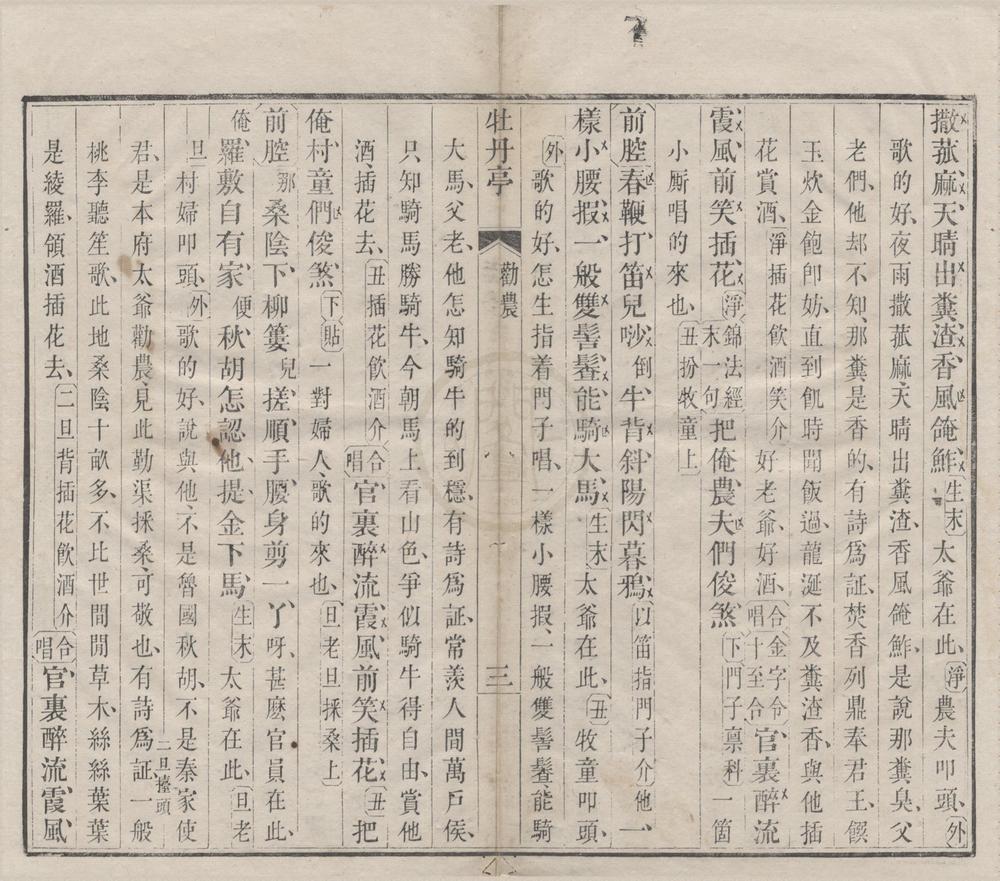 撒菰、麻、天晴出糞渣、香風䭕鮓、生末太爺在此、淨農夫叩頭、外
歌的好、夜雨撒菰麻、天晴出糞渣、香風䭕鮓、是說那糞臭、父
老們、他却不知、那糞是香的、有詩爲証、焚香列鼎奉君王、饌
玉炊金飽卽妨、直到飢時聞飯過、龍涎不及糞渣香、與他插
花賞酒、淨插花飲酒笑介好老爺、好酒、合唱合金字令十至合官裏醉流
霞、風前笑插花、淨錦法經末一句把俺農夫們俊煞、下門子禀科一箇
小厮唱的來也、丑扮牧童上
前腔春鞭打、笛兒唦、倒牛背斜陽閃暮鴉、以笛指門子介他、一
樣小腰報、一般雙髻鬖、能騎大馬、生末太爺在此、丑牧童叩頭、
外歌的好、怎生指着門子唱、一樣小腰報、一般雙髻鬖、能騎
牡丹亭 勸農 三
大馬、父老、他怎知騎牛的到穩、有詩爲証、常羡人間萬戶侯、
只知騎馬勝騎牛、今朝馬上看山色、爭似騎牛得自由、賞他
酒、插花去、丑插花飲酒介合唱官裏醉流霞、風前笑插花、丑把
俺村童們俊煞、下貼一對婦人、歌的來也、旦老旦採桑上
前腔、那桑陰下、柳簍兒搓、順手腰身剪一丫、呀、甚麽官員在此、
俺羅敷自有家、便秋胡怎認他、提金下馬、生末太爺在此、旦老
旦村婦叩頭、外歌的好、說與他、不是魯國秋胡、不是秦家使
君、是本府太爺勸農、見此勤渠採桑、可敬也、有詩爲証、一般二旦擡頭
桃李聽笙歌、此地桑陰十畝多、不比世間閒草木、絲絲葉葉
是綾羅、領酒插花去、二旦背插花飲酒介合唱官裏醉流霞、風